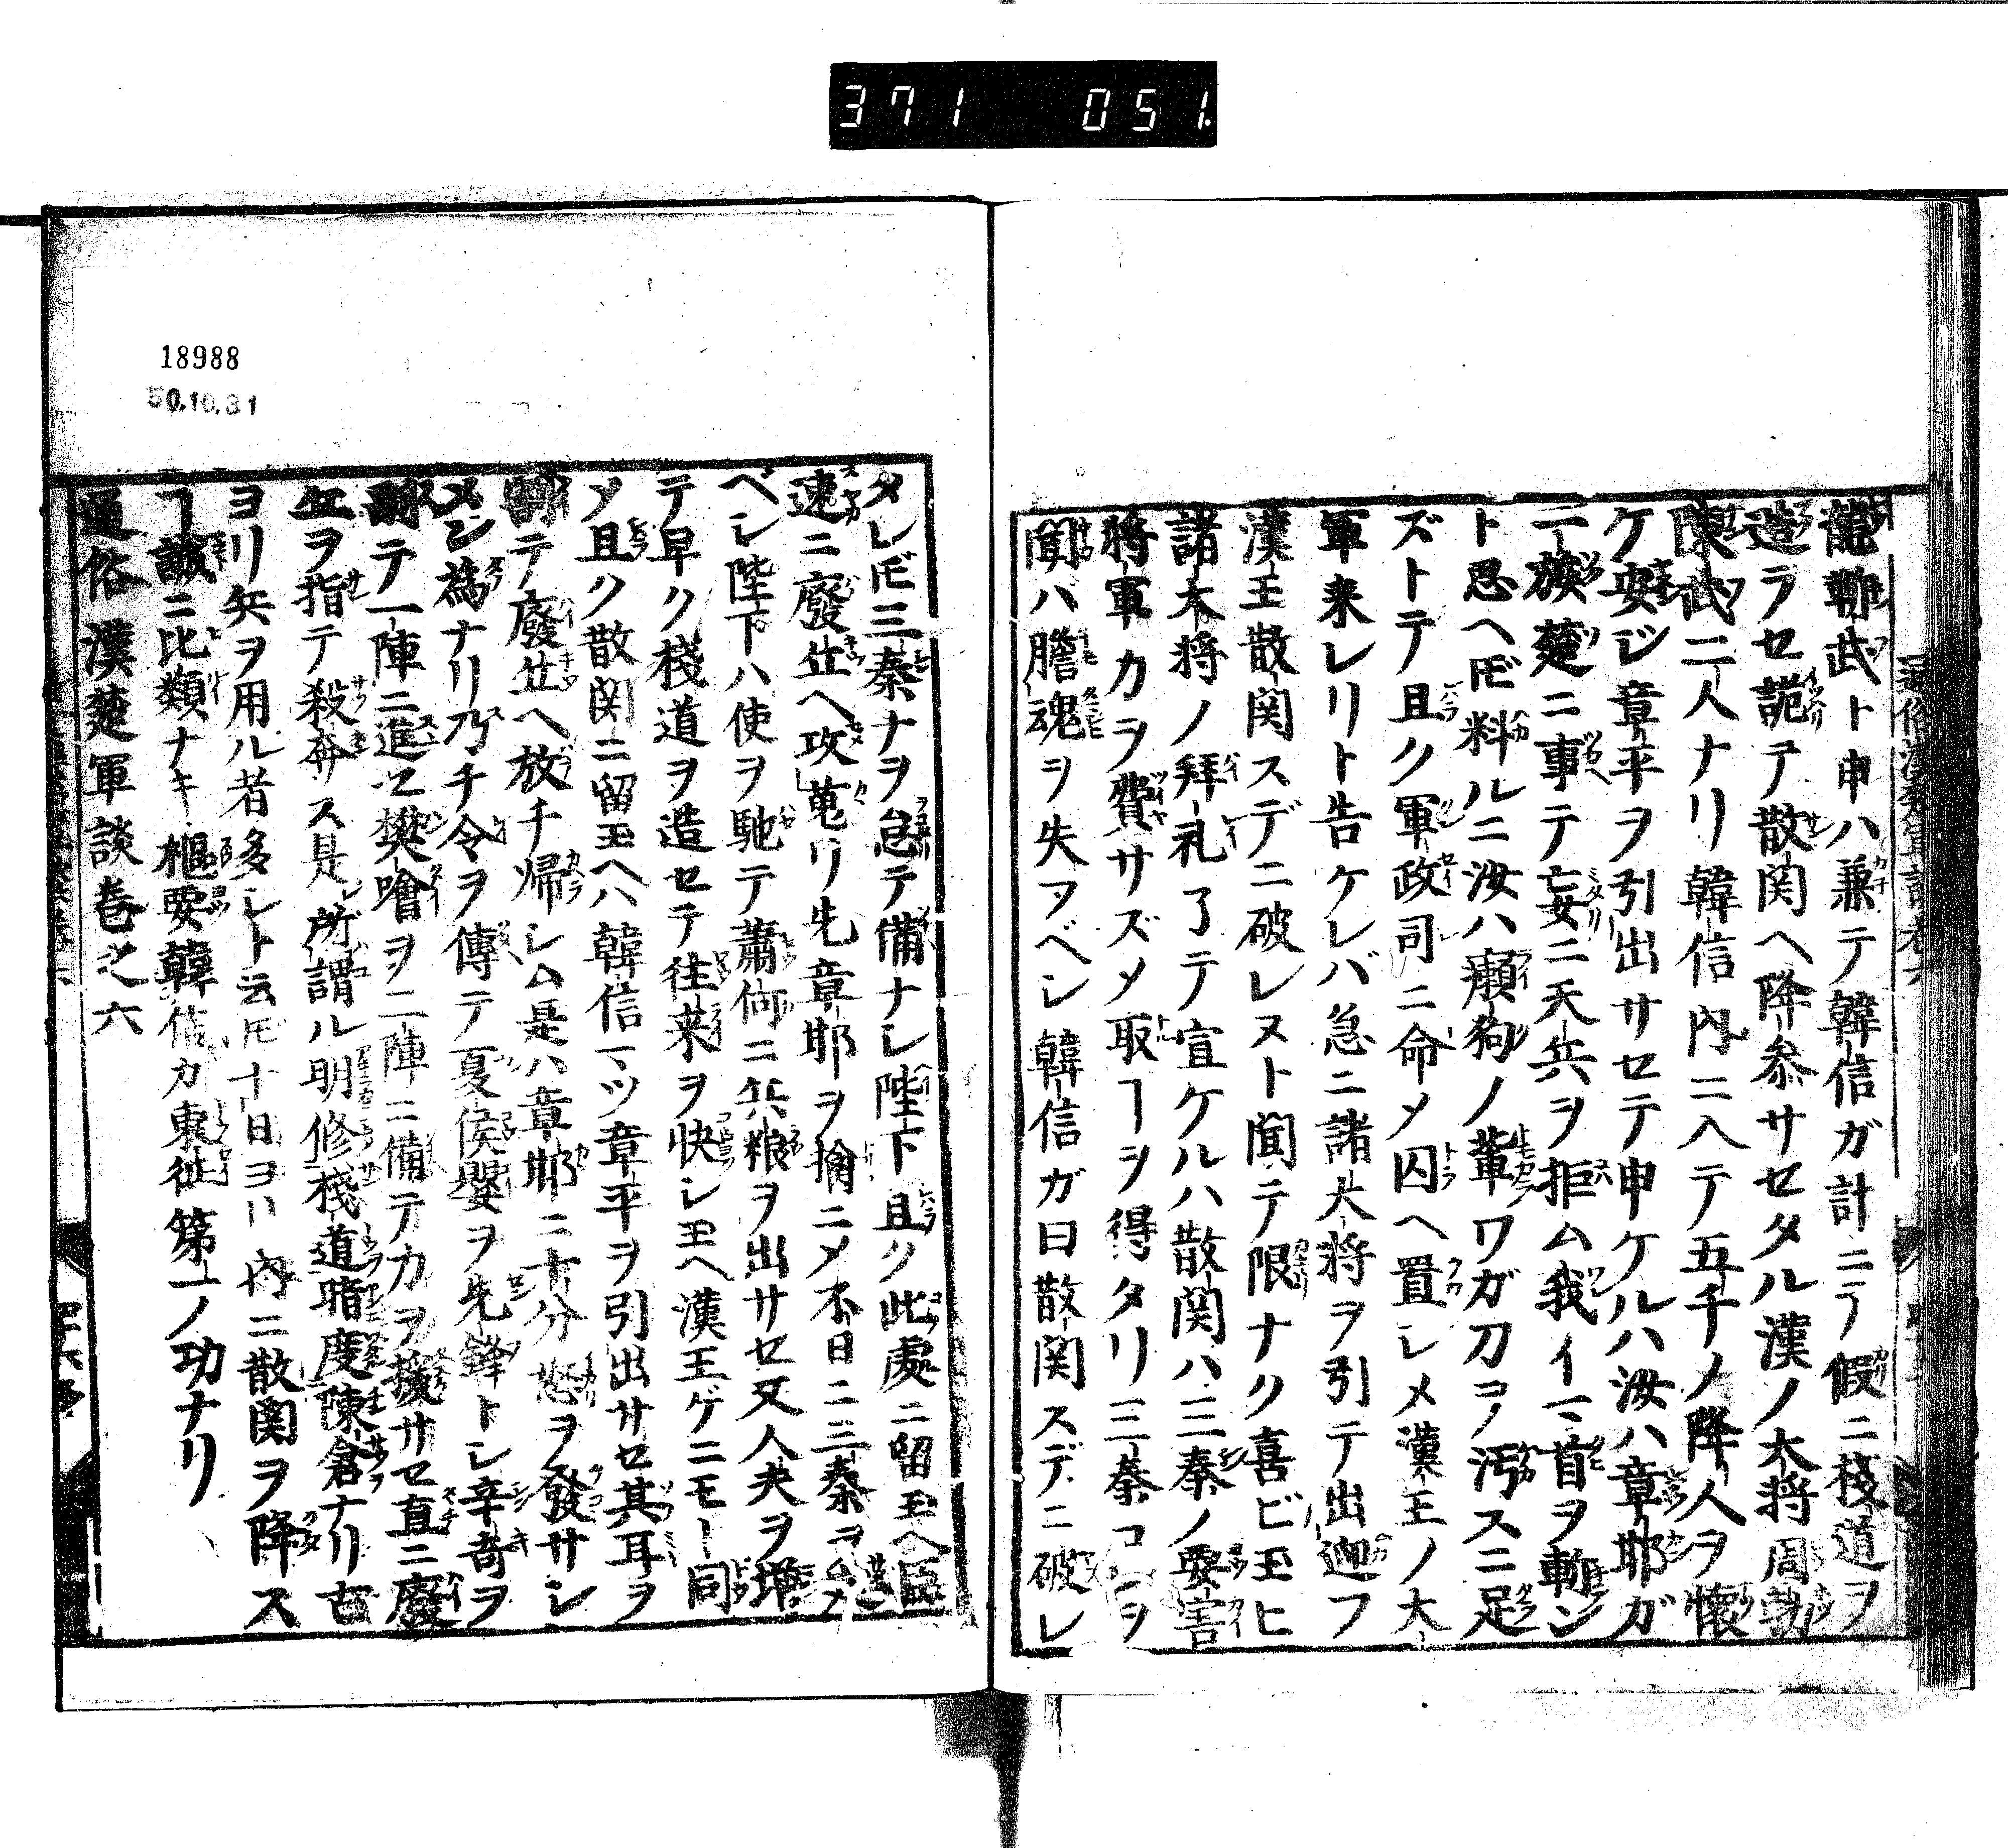 371 051
龍鄿武ト申ハ兼テ韓信ガ計ニテ假ニ棧道ヲ
造ラセ詭テ散関ヘ降参サセタル漢ノ大将周勃
陳武二人ナリ韓信内ニ入テ五千ノ降人ヲ懐
ケ安ジ章平ヲ引出サセテ申ケルハ汝ハ章邯ガ
一族楚ニ事テ妄ニ天兵ヲ拒ム我イマ首ヲ斬ン
ト思ヘ𪜈料ルニ汝ハ癩狗ノ輩ワガ刀ヲ汚スニ足
ズトテ且ク軍政司ニ命メ囚ヘ置シメ漢王ノ大
軍来レリト告ケレバ急ニ諸大将ヲ引テ出迎フ
漢王散関スデニ破レヌト聞テ限ナク喜ビ玉ヒ
諸大将ノ拜礼了テ宣ケルハ散関ハ三秦ノ要害
將軍力ヲ費サズメ取ヿヲ得タリ三秦コレヲ
聞ハ膽魂ヲ失フベシ韓信ガ曰散関スデニ破レ
タレ𪜈三秦ナヲ怠テ備ナシ陛下且ク此處ニ留玉ヘ臣
速ニ廢丘ヘ攻蒐リ先章邯ヲ擒ニメ不日ニ三秦ヲ
ベシ陛下ハ使ヲ馳テ蕭何ニ兵粮ヲ出サセ又人夫ヲ増
テ早ク棧道ヲ造セテ往来ヲ快シ玉ヘ漢王ゲニモト同
メ且ク散関ニ留玉ヘハ韓信マツ章平ヲ引出サセ其耳ヲ
テ廢丘ヘ放チ帰シム是ハ章邯ニ十分怒ヲ發サシ
メン為ナリ乃チ令ヲ傳テ夏侯嬰ヲ先鋒トシ辛奇ヲ
副テ一陣ニ進セ樊噲ヲ二陣ニ備テ力ヲ援サセ直ニ廢
丘ヲ指テ殺奔ス是所謂ル明修棧道暗度陳倉ナリ古
ヨリ兵ヲ用ル者多シト云𪜈十日ヨリ内ニ散関ヲ降ス
ヿ誠ニ比類ナキ樞要韓信カ東征第一ノ功ナリ
通俗漢楚軍談巻之六
18988
50.10.31